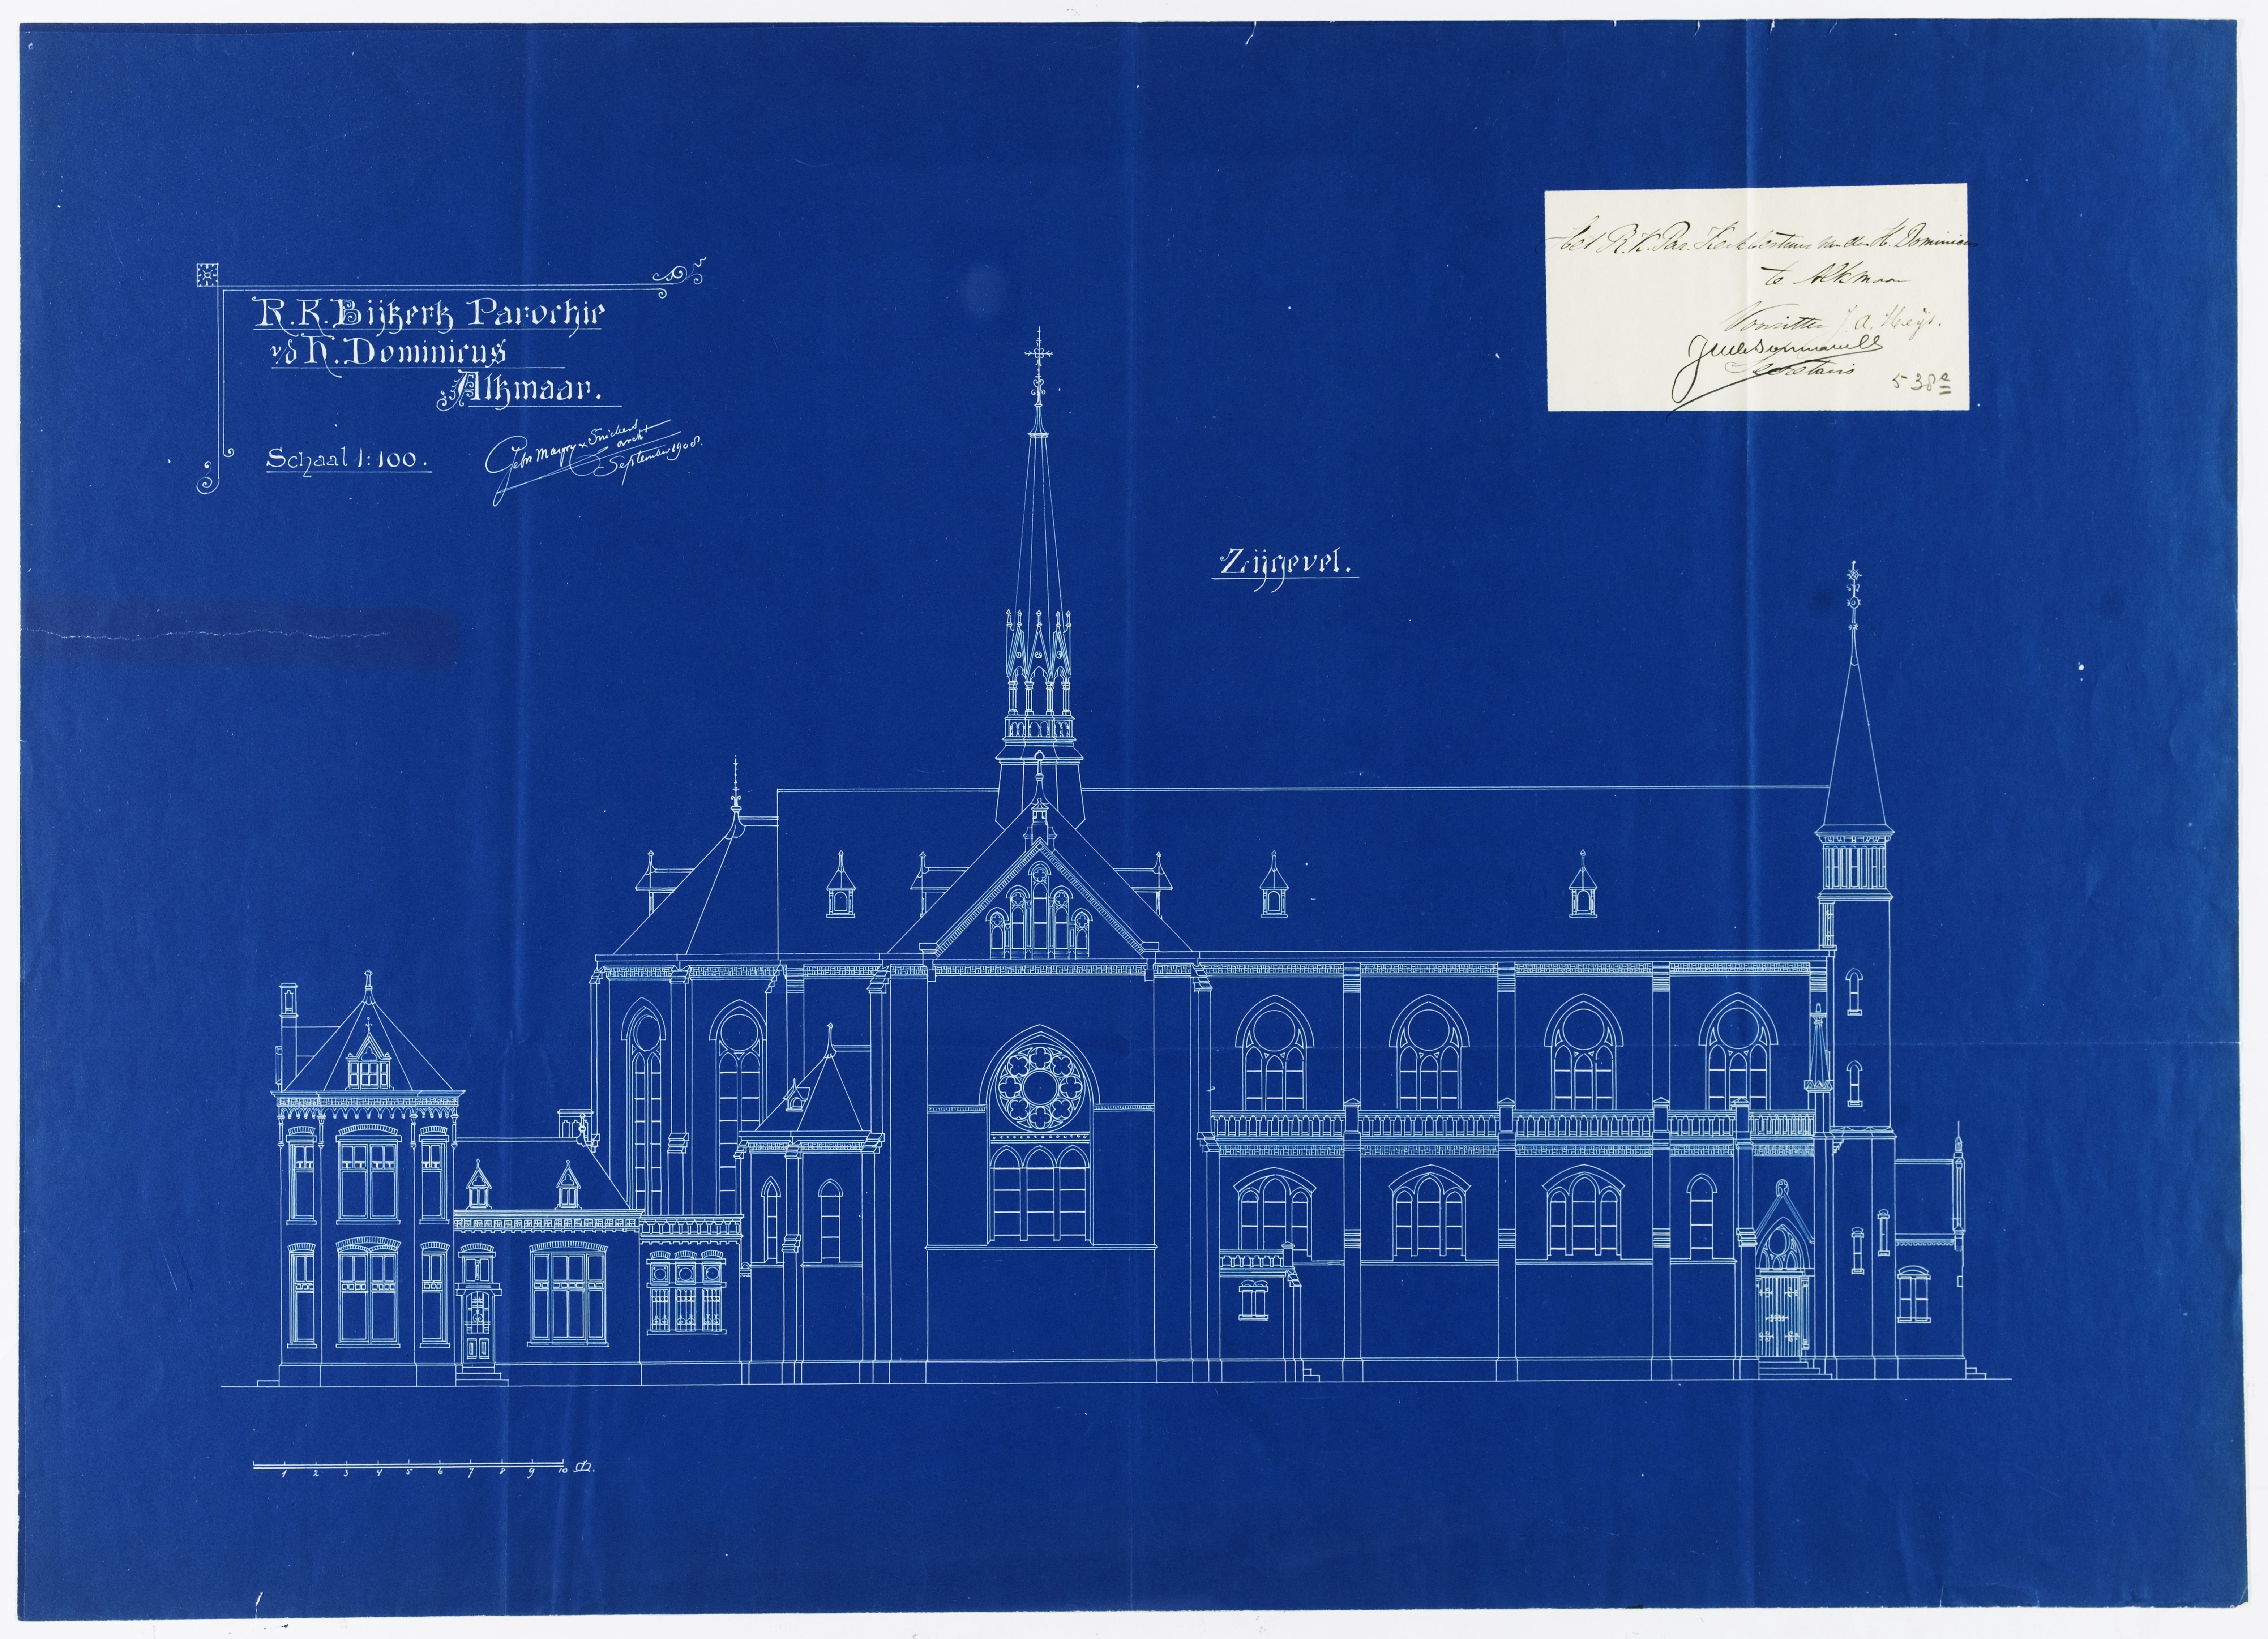 R.K. Bijkerk Parochie
v/d H. Dominicus
Alkmaar.
Schaal 1:100.
Gebr Margry & Snickers
archt
September 1908.
het R.K. Par. Kerkbestuur van den H. Dominicus
te Alkmaar
Voorzitter
Secretaris
538e
Zijgevel.
1 2 3 4 5 6 7 8 9 10 M.